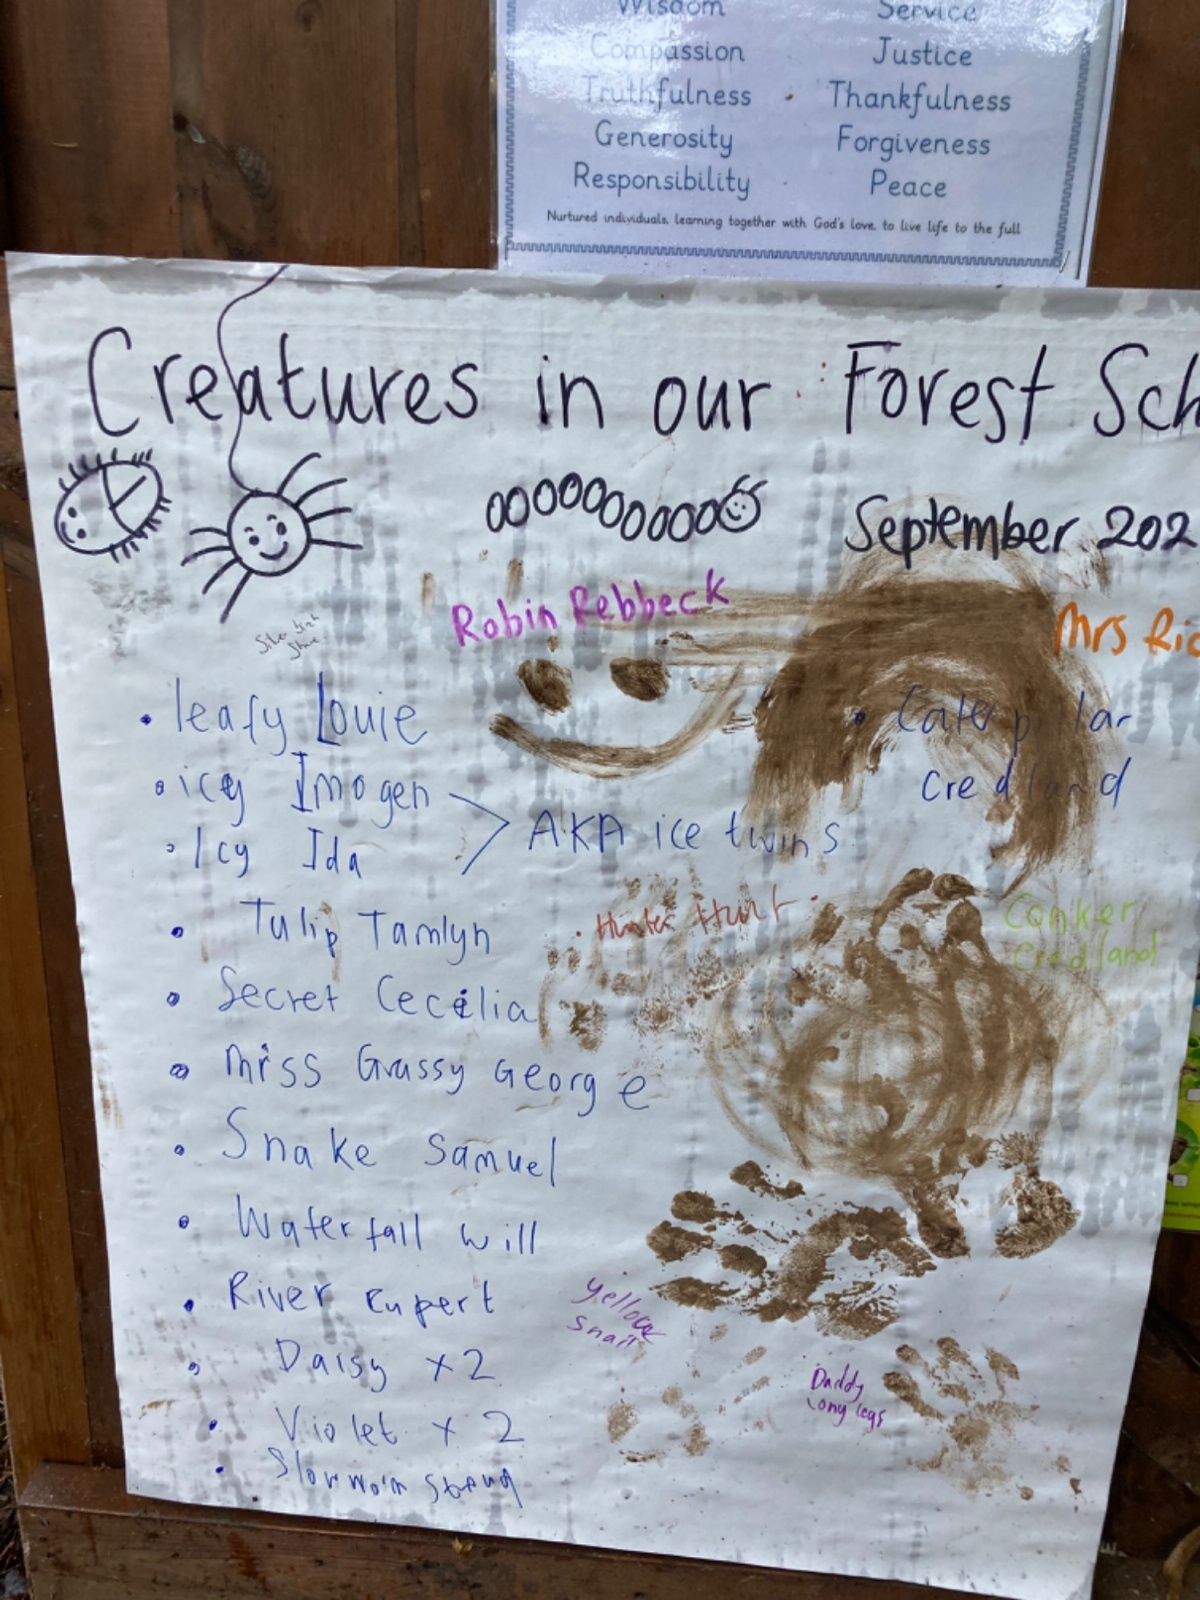 Wisdom Service
Compassion Justice
Truthfulness Thankfulness
Generosity Forgiveness
Responsibility Peace
Nurtured individuals, learning together with God's love, to live life to the full
Creatures in our Forest Sch
September 202
Robin Rebbeck
Mrs Ric
leafy Louie
icy Imogen
Icy Ida
AKA ice twins
Caterpillar
Credland
Tulip Tamlyn
Hunter Hurt
Conker
Credland
Secret Cecilia
Miss Grassy George
Snake Samuel
Waterfall will
River Rupert
yellow
snail
Daisy x2
Daddy
Long legs
Violet x 2
Slowworm